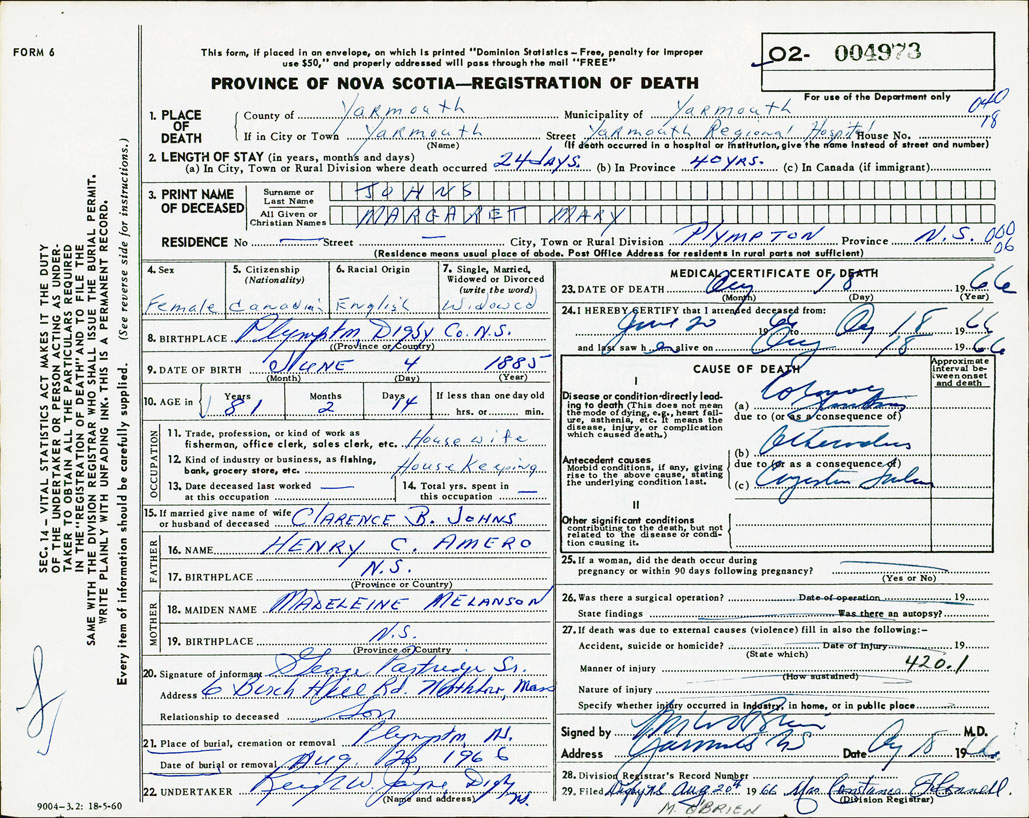 FORM 6
This form, if placed in an envelope, on which is printed "Dominion Statistics – Free, penalty for improper
use $50," and properly addressed will pass through the mail "FREE"
O2- 004973
PROVINCE OF NOVA SCOTIA—REGISTRATION OF DEATH
For use of the Department only
040
18
1. PLACE OF DEATH { County of Yarmouth Municipality of Yarmouth
If in City or Town Yarmouth Street Yarmouth Regional Hospital House No.
(Name) (If death occurred in a hospital or institution, give the name instead of street and number)
2. LENGTH OF STAY (in years, months and days)
(a) In City, Town or Rural Division where death occurred 24 days. (b) In Province 40 yrs. (c) In Canada (if immigrant)
3. PRINT NAME OF DECEASED { Surname or Last Name JOHNS
All Given or Christian Names MARGARET MARY
RESIDENCE No — Street — City, Town or Rural Division PLYMPTON Province N.S. 000
06
(Residence means usual place of abode. Post Office Address for residents in rural parts not sufficient)
4. Sex Female
5. Citizenship (Nationality) Canadian
6. Racial Origin English
7. Single, Married, Widowed or Divorced (write the word) Widowed
8. BIRTHPLACE Plympton, Digby Co. N.S.
(Province or Country)
9. DATE OF BIRTH JUNE 4 1885
(Month) (Day) (Year)
10. AGE in { Years 81 Months 2 Days 14 If less than one day old
hrs. or min.
OCCUPATION
11. Trade, profession, or kind of work as
fisherman, office clerk, sales clerk, etc. Housewife
12. Kind of industry or business, as fishing,
bank, grocery store, etc. House Keeping
13. Date deceased last worked —
at this occupation
14. Total yrs. spent in —
this occupation
15. If married give name of wife
or husband of deceased CLARENCE B. JOHNS
FATHER
16. NAME HENRY C. AMERO
17. BIRTHPLACE N.S.
(Province or Country)
MOTHER
18. MAIDEN NAME MADELEINE MELANSON
19. BIRTHPLACE N.S.
(Province or Country)
20. Signature of informant George Partridge Sr.
Address 6 Birch Hill Rd. Northboro, Mass
Relationship to deceased Son
21. Place of burial, cremation or removal Plympton, NS.
Date of burial or removal Aug. 20, 1966
22. UNDERTAKER W. Jayne, Digby NS.
(Name and address)
9004-3.2: 18-5-60
MEDICAL CERTIFICATE OF DEATH
23. DATE OF DEATH Aug 18 1966
(Month) (Day) (Year)
24. I HEREBY CERTIFY that I attended deceased from:
June 20 1966 to Aug 18 1966
and last saw her alive on Aug 18 1966
CAUSE OF DEATH
Approximate interval between onset and death
I
Disease or condition directly leading to death (This does not mean the mode of dying, e.g., heart failure, asthenia, etc. It means the disease, injury, or complication which caused death.)
(a) Coronary
due to (or as a consequence of)
Antecedent causes
Morbid conditions, if any, giving rise to the above cause, stating the underlying condition last.
(b)
due to (or as a consequence of)
(c) Congestive Failure
II
Other significant conditions
contributing to the death, but not related to the disease or condition causing it.
25. If a woman, did the death occur during
pregnancy or within 90 days following pregnancy?
(Yes or No)
26. Was there a surgical operation? Date of operation 19
State findings Was there an autopsy?
27. If death was due to external causes (violence) fill in also the following:–
Accident, suicide or homicide? Date of injury 19
(State which)
Manner of injury 420.1
(How sustained)
Nature of injury
Specify whether injury occurred in Industry, in home, or in public place
Signed by O'Brien M.D.
Address Yarmouth NS Date Aug 18 1966
28. Division Registrar's Record Number
29. Filed Digby NS Aug 20th 1966 Mrs Constance O'Connell.
(Division Registrar)
M. O'BRIEN
SEC. 14 – VITAL STATISTICS ACT MAKES IT THE DUTY
OF THE UNDERTAKER OR PERSON ACTING AS UNDER-
TAKER TO OBTAIN ALL THE PARTICULARS REQUIRED
IN THE "REGISTRATION OF DEATH" AND TO FILE THE
SAME WITH THE DIVISION REGISTRAR WHO SHALL ISSUE THE BURIAL PERMIT.
WRITE PLAINLY WITH UNFADING INK. THIS IS A PERMANENT RECORD.
Every item of information should be carefully supplied. (See reverse side for instructions.)